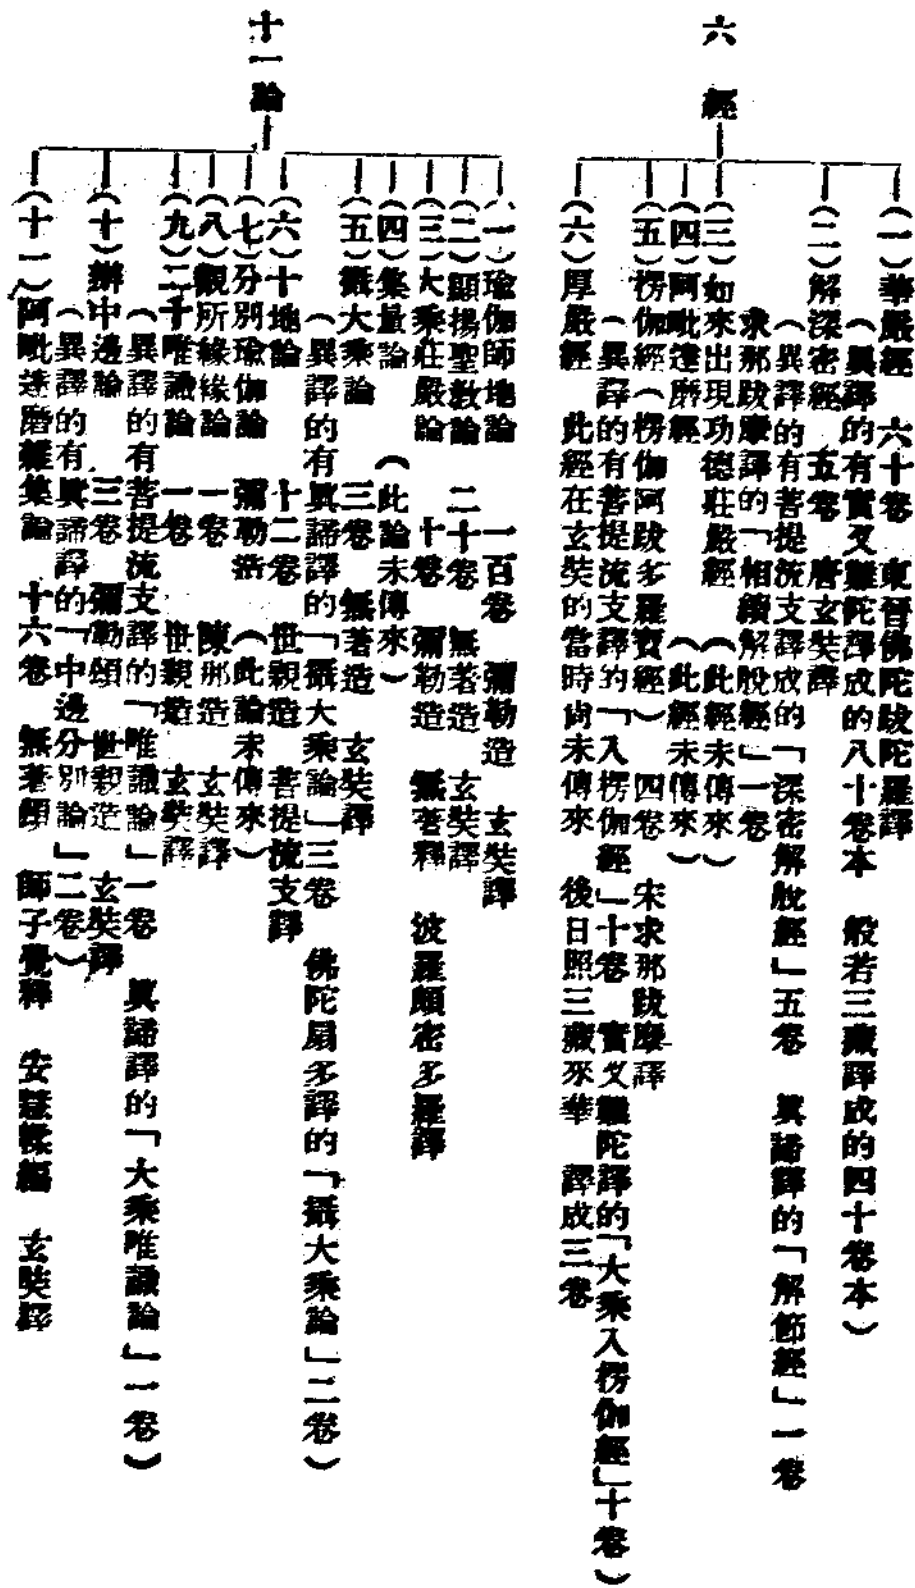 六經
(一)華嚴經　六十卷　東晉佛陀跋陀羅譯
(異譯的有實叉難陀譯成的八十卷本　般若三藏譯成的四十卷本)
(二)解深密經　五卷　唐玄奘譯
(異譯的有菩提流支譯成的「深密解脫經」五卷　眞諦譯的「解節經」一卷
求那跋摩譯的「相續解脫經」一卷
(三)如來出現功德莊嚴經　(此經未傳來)
(四)阿毗達磨經　(此經未傳來)
(五)楞伽經(楞伽阿跋多羅寶經)　四卷　宋求那跋摩譯
(異譯的有菩提流支譯的「入楞伽經」十卷　實叉難陀譯的「大乘入楞伽經」十卷)
(六)厚嚴經　此經在玄奘的當時尚未傳來　後日照三藏來華　譯成三卷
十一論
(一)瑜伽師地論　一百卷　彌勒造　玄奘譯
(二)顯揚聖敎論　二十卷　無著造　玄奘譯
(三)大乘莊嚴論　十卷　彌勒造　無著釋　波羅頗密多羅譯
(四)集量論　(此論未傳來)
(五)攝大乘論　三卷　無著造　玄奘譯
(異譯的有眞諦譯的「攝大乘論」三卷　佛陀扇多譯的「攝大乘論」二卷)
(六)十地論　十二卷　世親造　菩提流支譯
(七)分別瑜伽論　彌勒造　(此論未傳來)
(八)觀所緣緣論　一卷　陳那造　玄奘譯
(九)二十唯識論　一卷　世親造　玄奘譯
(異譯的有菩提流支譯的「唯識論」一卷　眞諦譯的「大乘唯識論」一卷)
(十)辦中邊論　三卷　彌勒頌　世親造　玄奘譯
(異譯的有眞諦譯的「中邊分別論」二卷)
(十一)阿毗達磨雜集論　十六卷　無著頌　師子覺釋　安慧糅編　玄奘譯